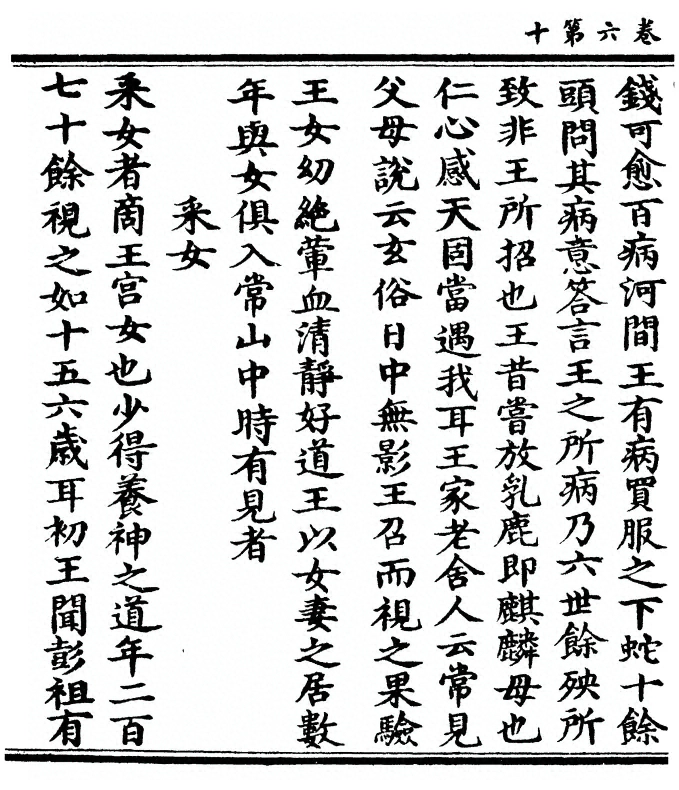 卷六第十
錢可愈百病河間王有病買服之下蛇十餘
頭問其病意答言王之所病乃六世餘殃所
致非王所招也王昔嘗放乳鹿即麒麟母也
仁心感天固當遇我耳王家老舍人云常見
父母說云玄俗日中無影王召而視之果驗
王女幼絶葷血清靜好道王以女妻之居數
年與女俱入常山中時有見者
采女
采女者商王宮女也少得養神之道年二百
七十餘視之如十五六歲耳初王聞彭祖有